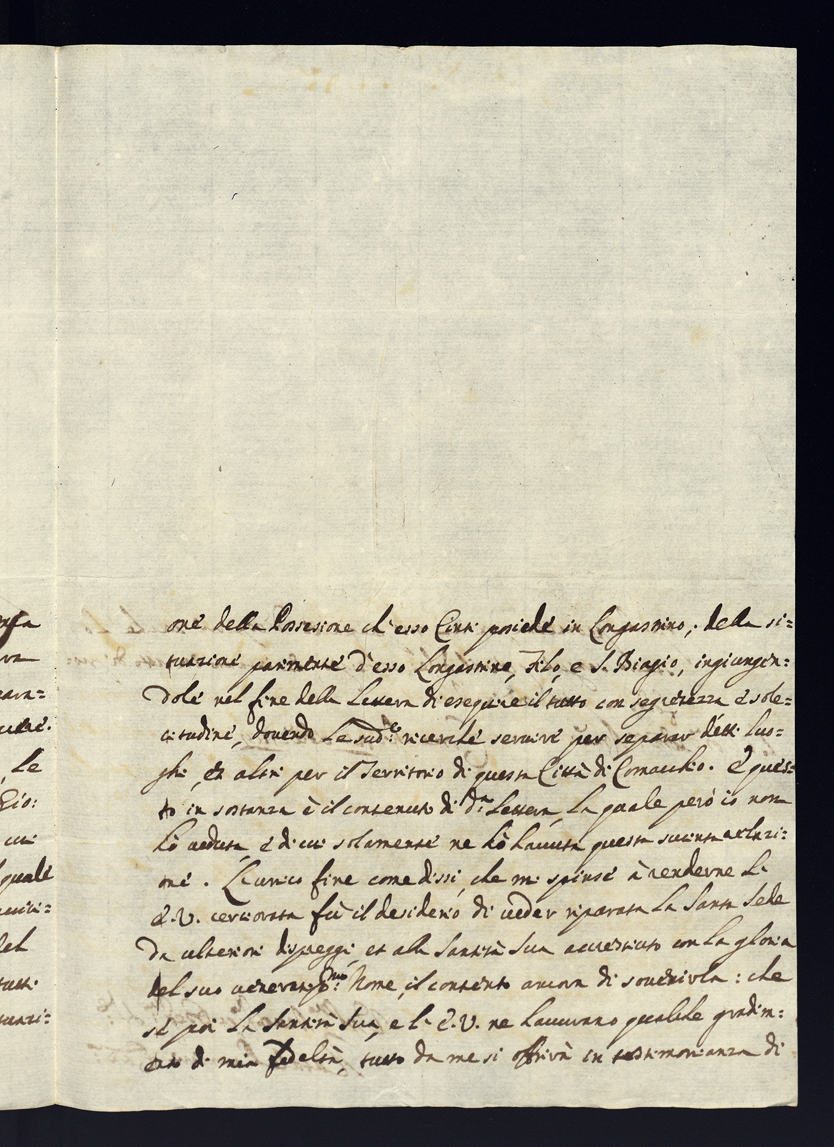 one della Possessione ch'esso Conti posiede in Longastrino; della si=
tuazione parimente d'esso Longastrino, Filo, e S. Biagio, ingiungen=
dole nel fine della Lettera di eseguire il tutto con segretezza e sole=
citudine, dovendo Le sud.e ricerche servire per separar detti luo=
ghi, et altri per il Territorio di questa Città di Comachio. E ques=
to in sostanza è il contenuto di d.a Lettera, la quale però io non
hò veduta, e di cui solamente ne hò havuta questa succinta relazi=
one. L'unico fine come dissi, che mi spinse à renderne l'
E.V. certiorata fù il desiderio di veder riparata La Santa Sede
da ulteriori dispreggi, et alla Santità Sua accresciuto con la gloria
del suo venerand.mo Nome, il contento ancora di sovenirla: che
se poi La Santità Sua, e l'E.V. ne havevano qualche gradim=
ento di mia fedeltà, tutto da me si offrirà in testimonianza di
Le
Gio:
quale
del
tutti